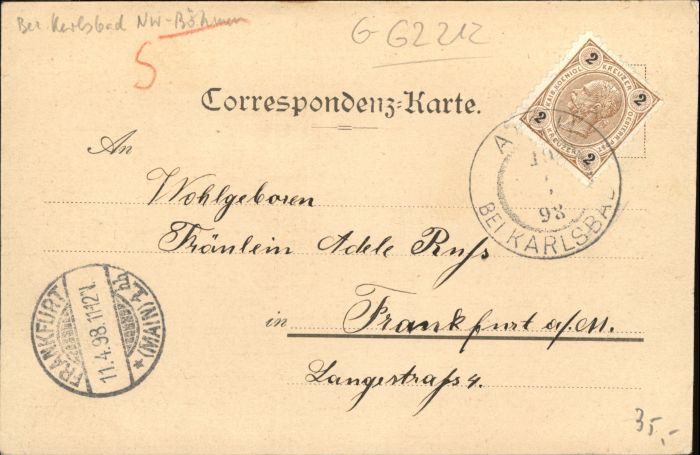 Bei Karlsbad NW-Böhmen
5
G G2212
Correspondenz-Karte.
2 KREUZER 2
KAIS. KOENIGL. OESTERR. POST
2 KREUZER 2
BEI KARLSBAD
98
An
Wohlgeboren
Fräulein Adele Russ
in Frankfurt a/M.
Langestraſs 4.
FRANKFURT (MAIN) 1
11.4.98.11-12V.
35,-